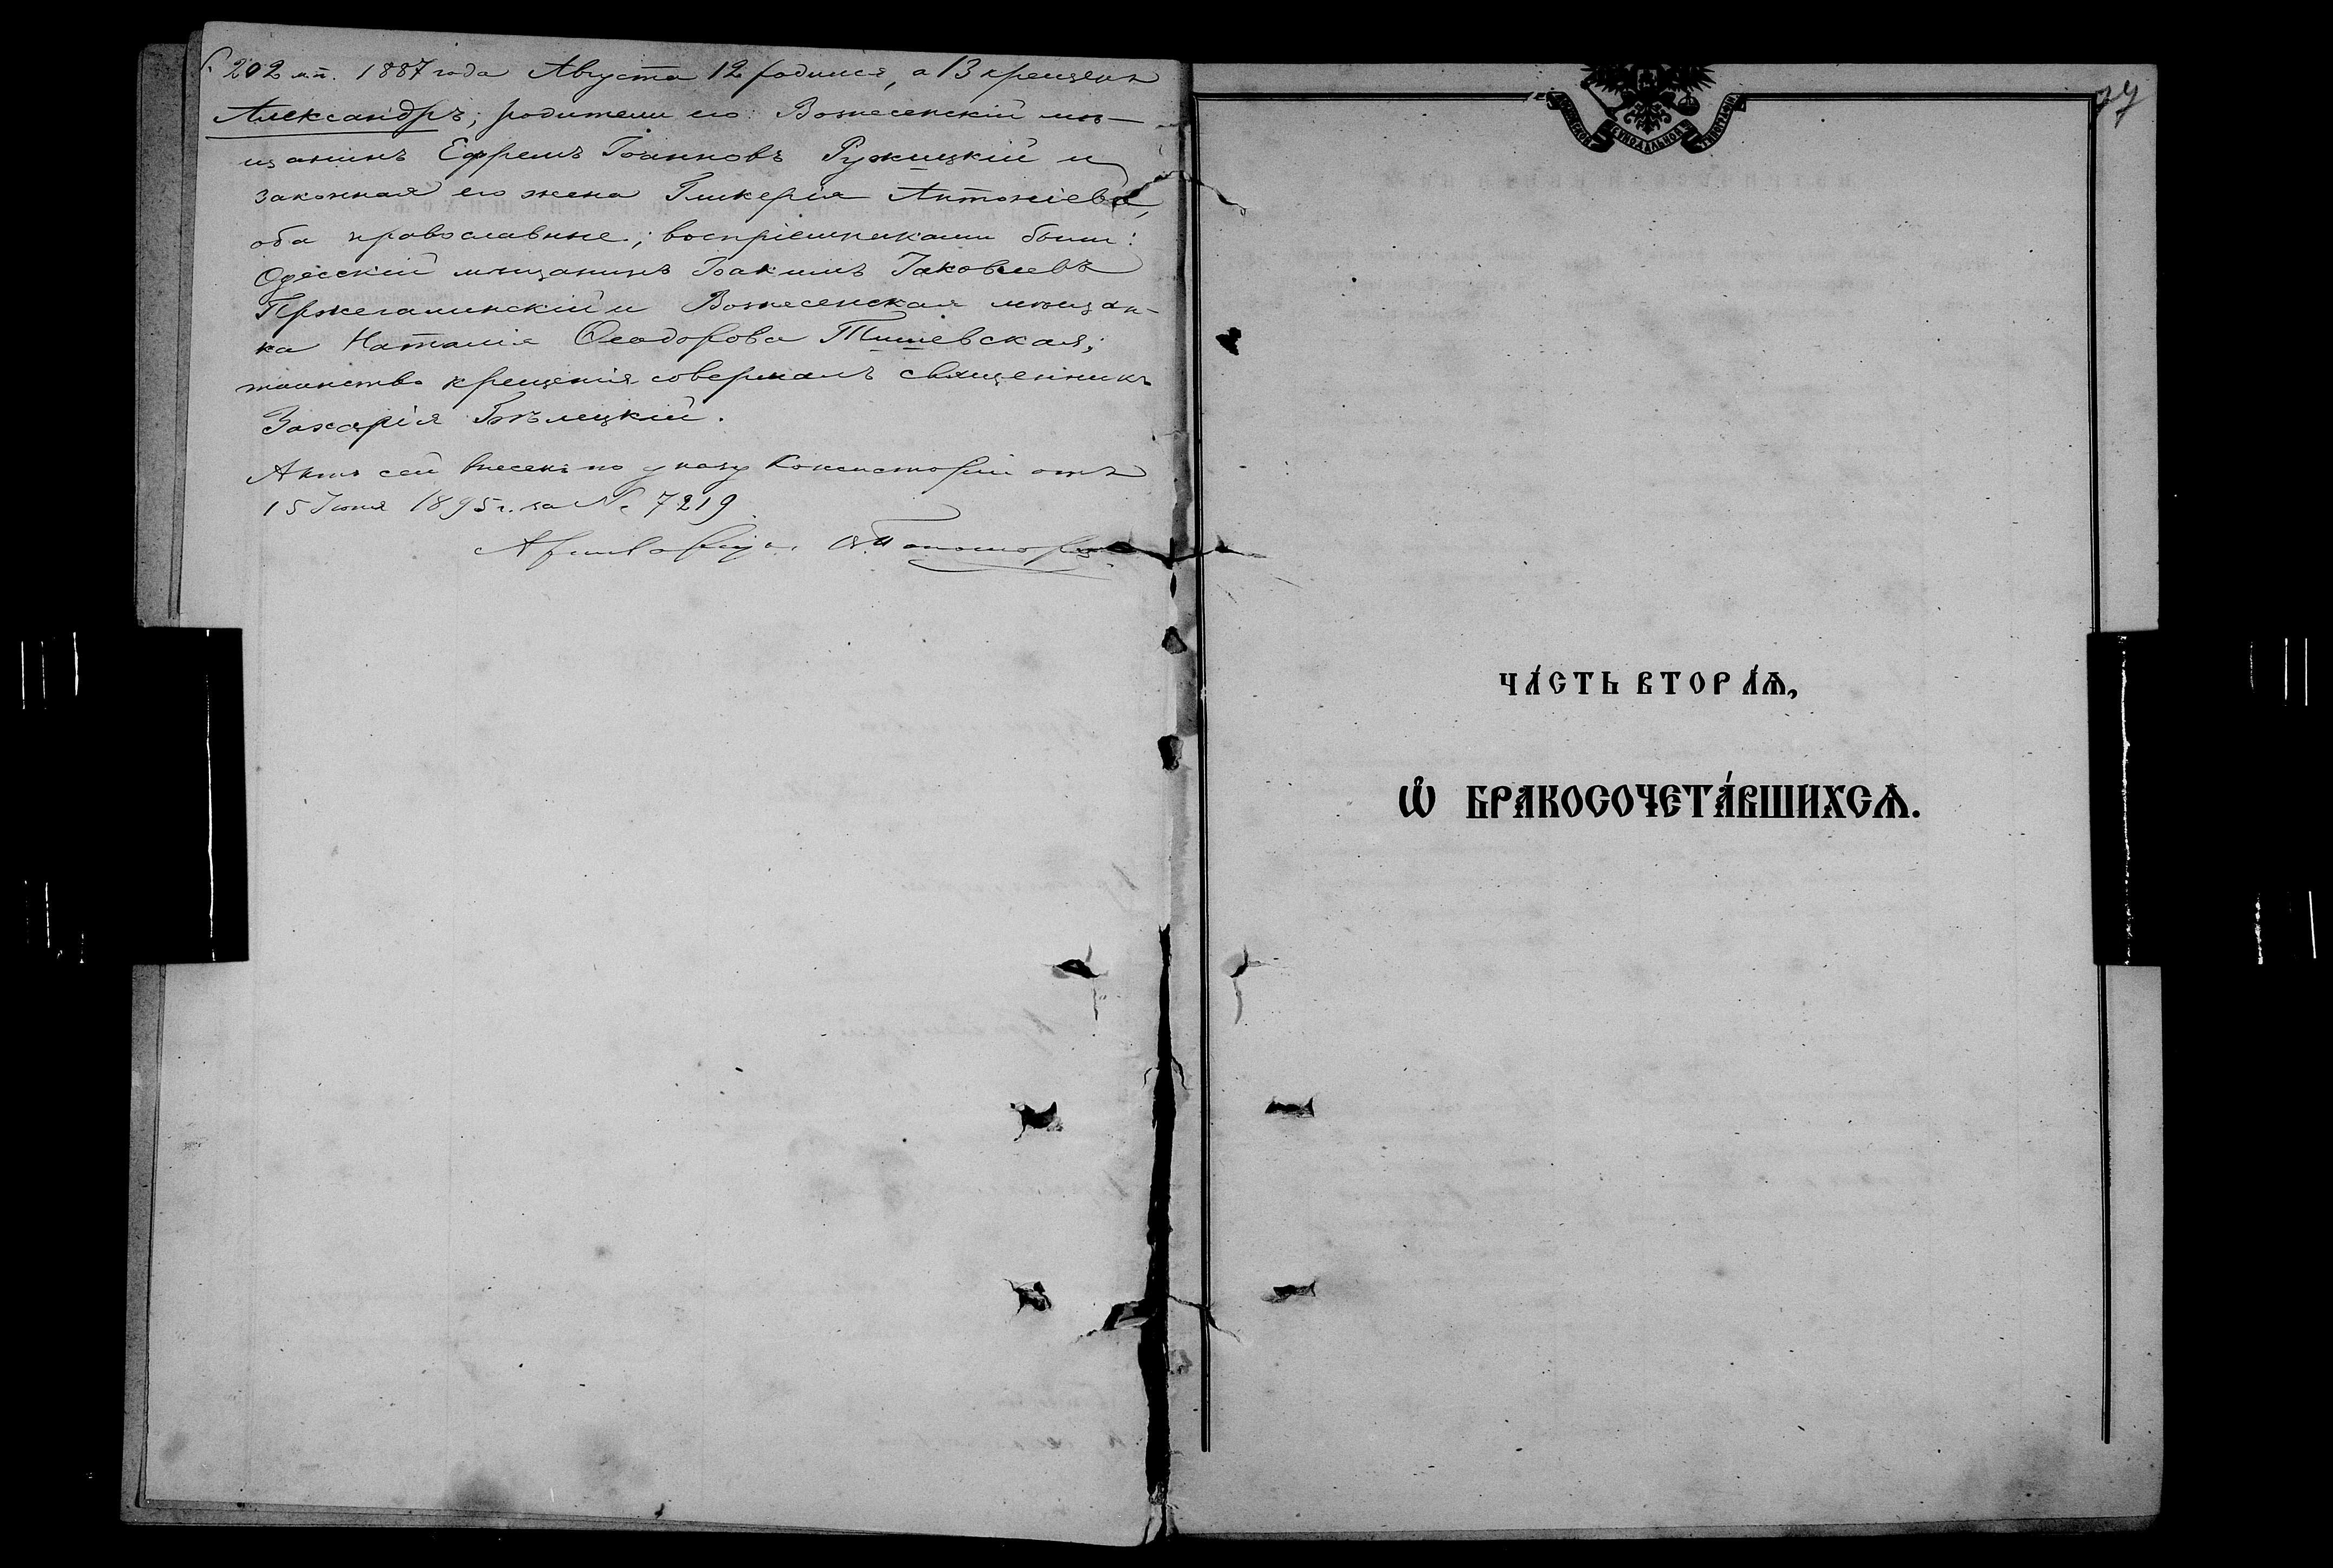 202 мп. 1887 года Августа 12 родился, а 13 крещенъ
Александръ; родители его: Вознесенскій мѣ-
щанинъ Ефремъ Іоанновъ Ружицкій и
законная его жена Гликерія Антоніева,
оба православные; воспріемниками были:
Одесскій мѣщанинъ Іоакимъ Іаковлевъ
и Вознесенская мѣщан-
ка Наталія Ѳеодорова Тишевская;
таинство крещенія совершалъ священникъ
Захарія Бѣлецкій.
Актъ сей внесенъ по указу Консисторіи отъ
15 Іюня 1895 г. за № 7219
МОСКОВСКОЙ СѴНОДАЛЬНОЙ ТИПОГРАФІИ
ЧА́СТЬ ВТОРА́Ѧ,
Ѽ БРАКОСОЧЕТА́ВШИХСѦ.